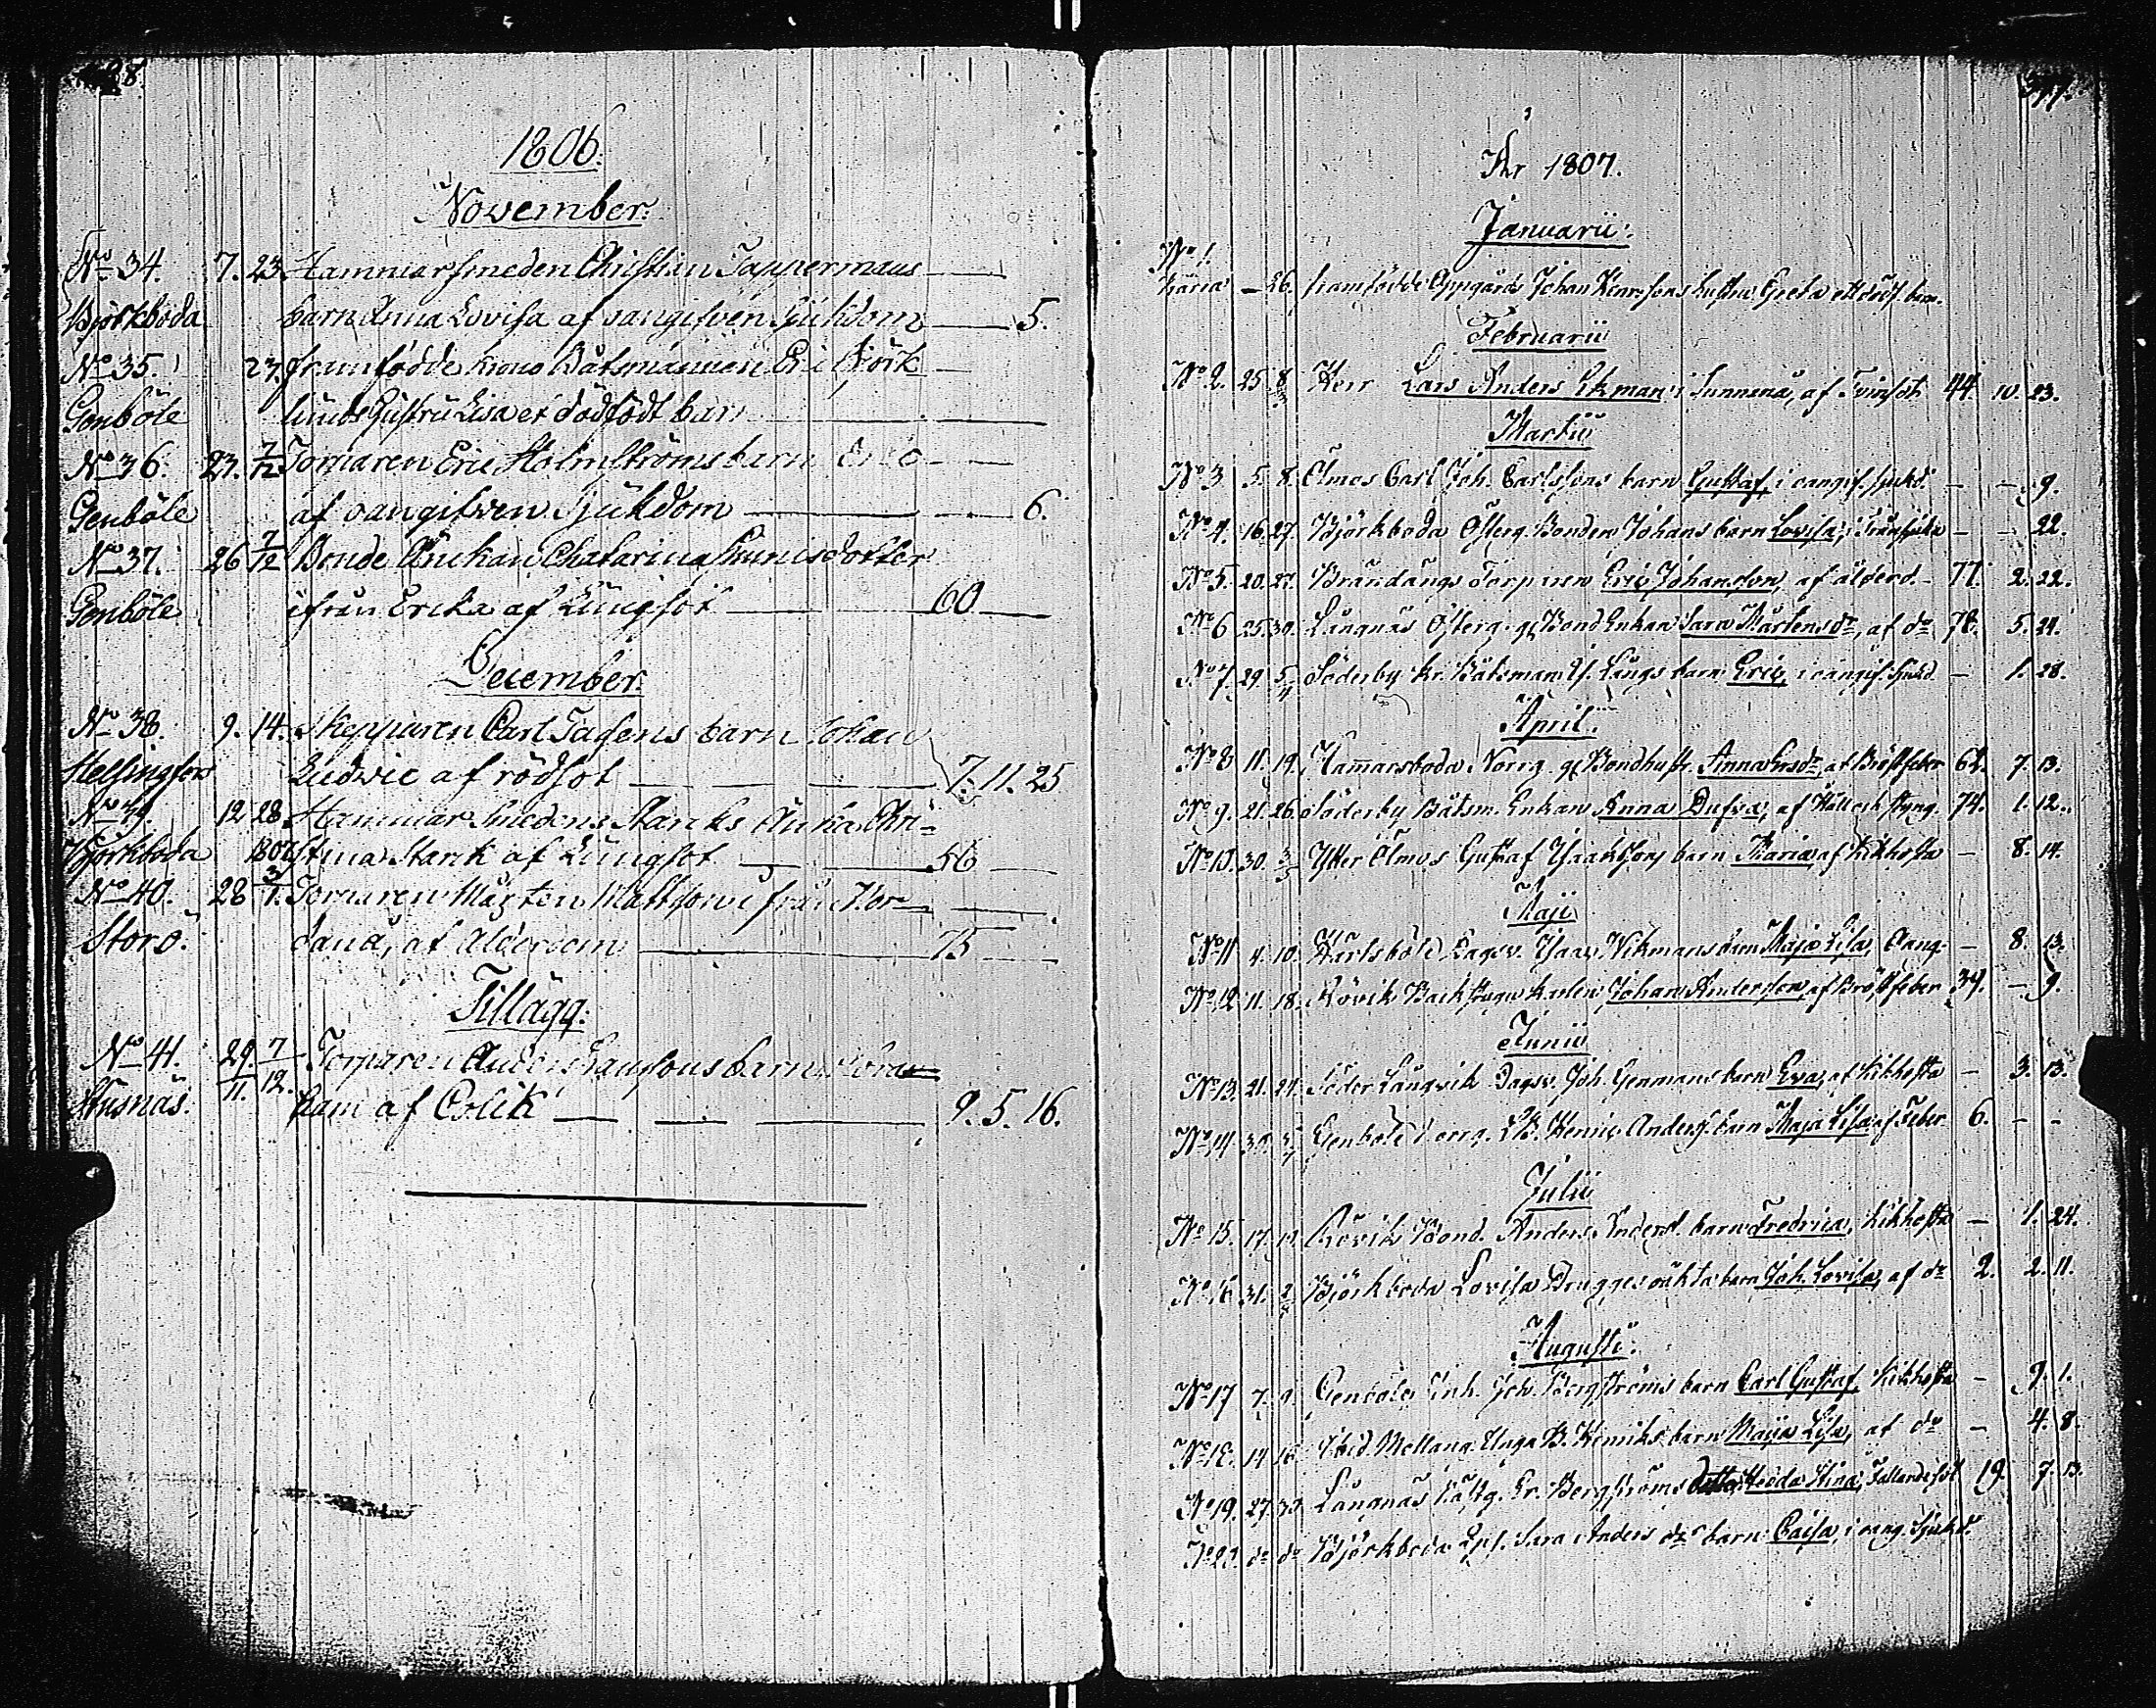 1806.
November.
No 34. 7. 23. Hammarsmeden Christian Tappermans
Björkboda barn Anna Lovisa af oangifven Sjukdom 5.
No 35. 27. framfödde krono Båtsmannen Eric Björk
Genböle lunds Hustru Lisa et dödfödt barn
No 36. 23. 7/12 Torparen Eric Holmströms barn Eric
Genböle af oangifven Sjukdom 6.
No 37. 26 7/12 Bonde Änkan Chatarina Simisdotter
Genböle ifrån Ericka af Lungsot 60
December.
No 38. 9. 14. Skepparen Carl barn Johan
Helsingfors Ludvic af rödsot 7. 11. 25
No 39. 12 28 Hammar Smedens Starcks Änka Chri-
Björkboda 1807 stina Starck af Lungsot 56
No 40. 28 3/1. Torparen Mårten Mattsson ifrån
Storö. af Ålderdom 75
Tillägg:
No 41. 29/11. 7/12. Torparen Anders barn
Husnäs. ham af Colik 9. 5. 16.
År 1807.
Januarii:
No 1.
26. framfödde Johan Hustru Greta ett dödf. barn.
Februarii
No 2. 25. 8/3 Herr Lars Anders Ekman i Sunnanå, af 44. 10. 23.
Martii
No 3 5. 8. Ölmos Carl Joh. Carlssons barn Gustaf, i oangif. sjukd. - - 9.
No 4. 16. 27. Björkboda Österg. Bonden Johans barn Lovisa, i - - 22.
No 5. 20. 27. Brändängs Torparen Eric Johansson, af ålderd. 77. 2. 22.
No 6 25. 30. Långnäs Österg. gl. Bond Enkan Sara Mårtensdr, af do 78. 5. 24.
No 7. 29. 5/4 Söderby Kr. Båtsman Långs barn Eric, i oangif. Sjukd - 1. 28.
April.
No 8 11. 19. Hammarsboda Norrg. gl. Bondhustr. Anna Ersdr af Bröstfeber 62. 7. 13.
No 9. 21. 26. Söderby Båtsm. Enkan Anna Dufva, af Håll och Styng. 74. 1. 12.
No 10. 30. 3/5 Ytter Ölmos Gustaf Isakssons barn Maria af Kikhosta - 8. 14.
Maji
No 11 4. 10. Karlsböle Dagsv. Isaac Wikmans barn Maja Lisa, Oang. - 8. 13.
No 12. 11. 18. Rövik Backstugu karlen Johan Andersson, af Bröstfeber 34. - 9.
Junii
No 13. 21. 24. Söder Långvik Dagsv. Joh. Genmans barn Eva, af Kikhosta - 3. 13.
No 14. 30. Genböle Norrg. Henric Anders. barn Maja Lisa af Feber 6. - -
Julii
No 15. 17. 19 Rövik Bond. Anders Anders. barn Fredrica, Kikhosta - 1. 24.
No 16. 31. 2/8 Björkboda Lovisa Drugges oäkta barn Joh. Lovisa, af do 2. 2. 11.
Augusti.
No 17 7. 9. Genböle Inh. Joh. Bergströms barn Carl Gustaf, Kikhosta - 9. 1.
No 18. 14 16. Ibid. Mellang. Unga B. Henriks barn Maja Lisa, af do - 4. 8.
No 19. 27. 30. Långnäs Er. Bergströms dotter Hedda Stina, Fallandesot 19. 7. 13.
No 20. do do Björkboda Sara Anders dr barn Caisa, i oang. Sjukd.